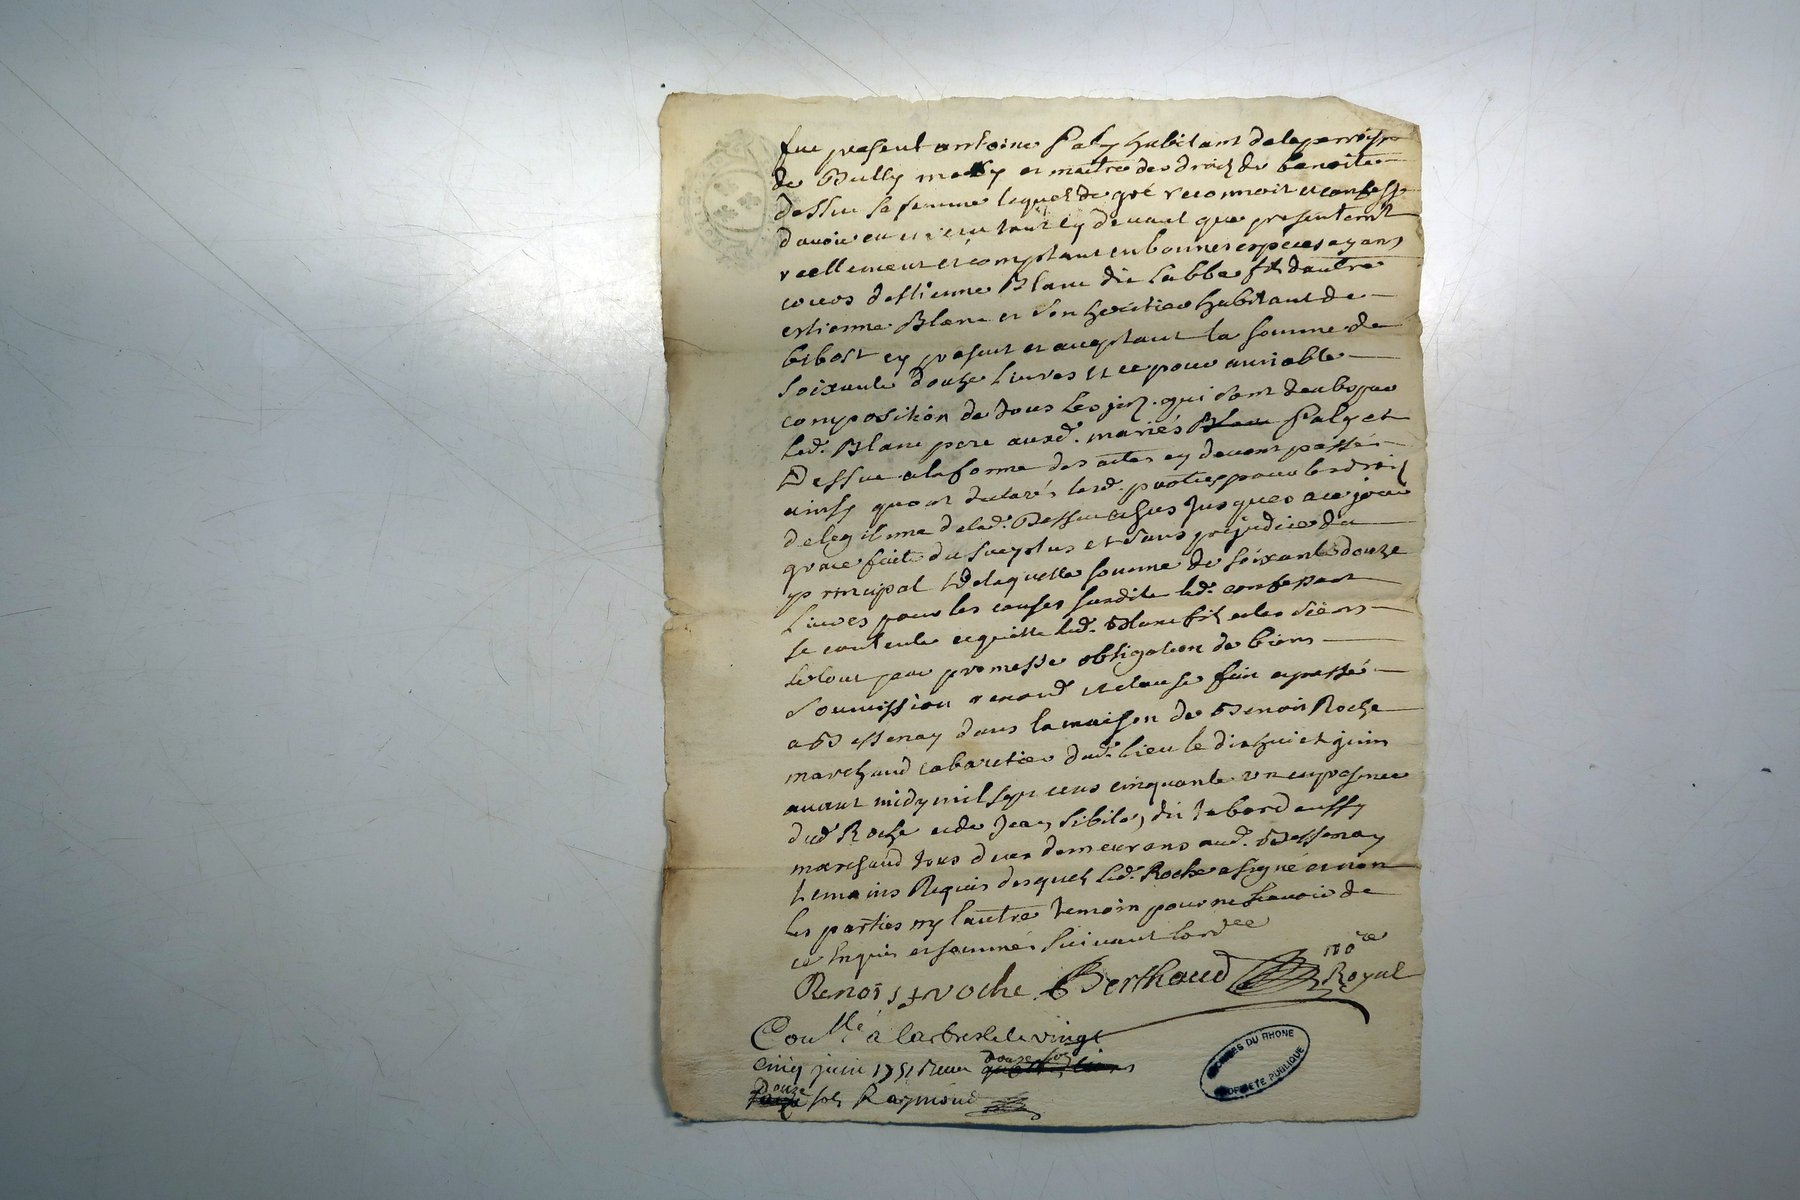 fut present antoine Faly habitant de la parroisse
de Bully mary et maitre des droicts de benoite
dessue sa femme lequel de gré reconnoit et confesse
davoir eu et receu tant cy devant que presentemt
reellement et comptant en bonnes especes ayans
cours destienne Blanc dit labbe fils dautre
estienne Blanc et son heritier habitant de
bibost cy present et acceptant la somme de
soixante douze livres et ce pour amiable
composition de tous les qui sont deubs par
led. Blanc pere ausd. mariés Faly et
Dessue a la forme des actes cy devant passés
ainsy quont declarés lesd. parties pour les droits
de legitime de lad. Dessue jusques a ce jour
grace faite du surplus et sans prejudice du
principal de laquelle somme de soixante douze
livres pour les causes susdite led. confessant
se contente et quitte led. Blanc fils et les siens
le tout par promesse obligation de biens
soumission renond et clause fait et passé
a Bessenay dans la maison de Benoit Roche
marchand cabaretier dud. lieu le dix huict juin
avant midy mil sept cens cinquante un en presence
dud Roche et de Jean Sibile dit tabord aussy
marchand tous deux demeurans aud. Bessenay
temoins Requis desquels led. Roche a signé et non
les parties ny lautre temoin pour ne scavoir de
ce enquis et sommés suivant lordce
Benoist roche Berthaud nore
Royal
Coullé a larbresle le vingt
cinq juin 1751 Receu douze sols
douze sols Raymond
ARCHIVES DU RHONE
PROPRIETE PUBLIQUE